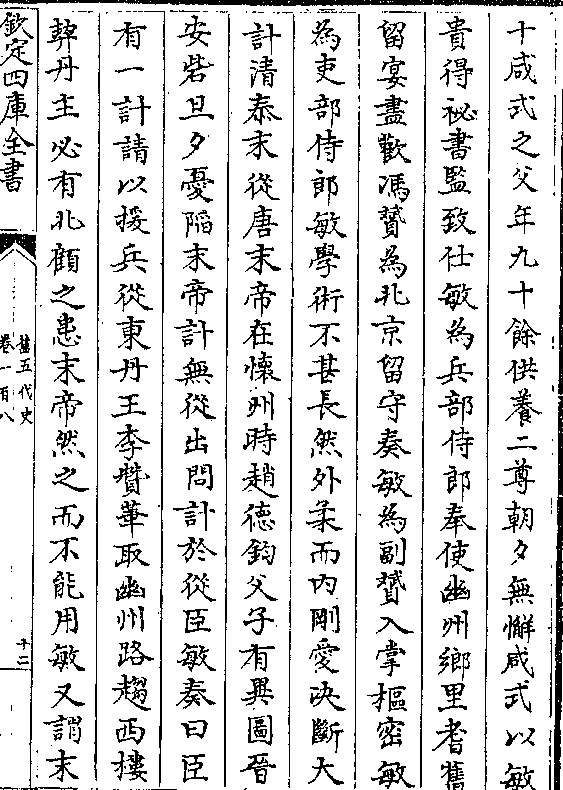 十咸式之父年九十餘供養二尊朝夕無懈咸式以敏
貴得祕書監致仕敏為兵部侍郎奉使幽州鄉里耆舊
留宴盡歡馮贇為北京留守奏敏為副贇入掌樞密敏
為吏部侍郎敏學術不甚長然外柔而内剛愛決斷大
計清泰末從唐末帝在懷州時趙德鈞父子有異圖晉
安砦旦夕憂陷末帝計無從出問計於從臣敏奏曰臣
有一計請以援兵從東丹王李贊華取幽州路趨西樓
契丹主必有北顧之患末帝然之而不能用敏又謂末
欽定四庫全書
舊五代史
卷一百八
十二